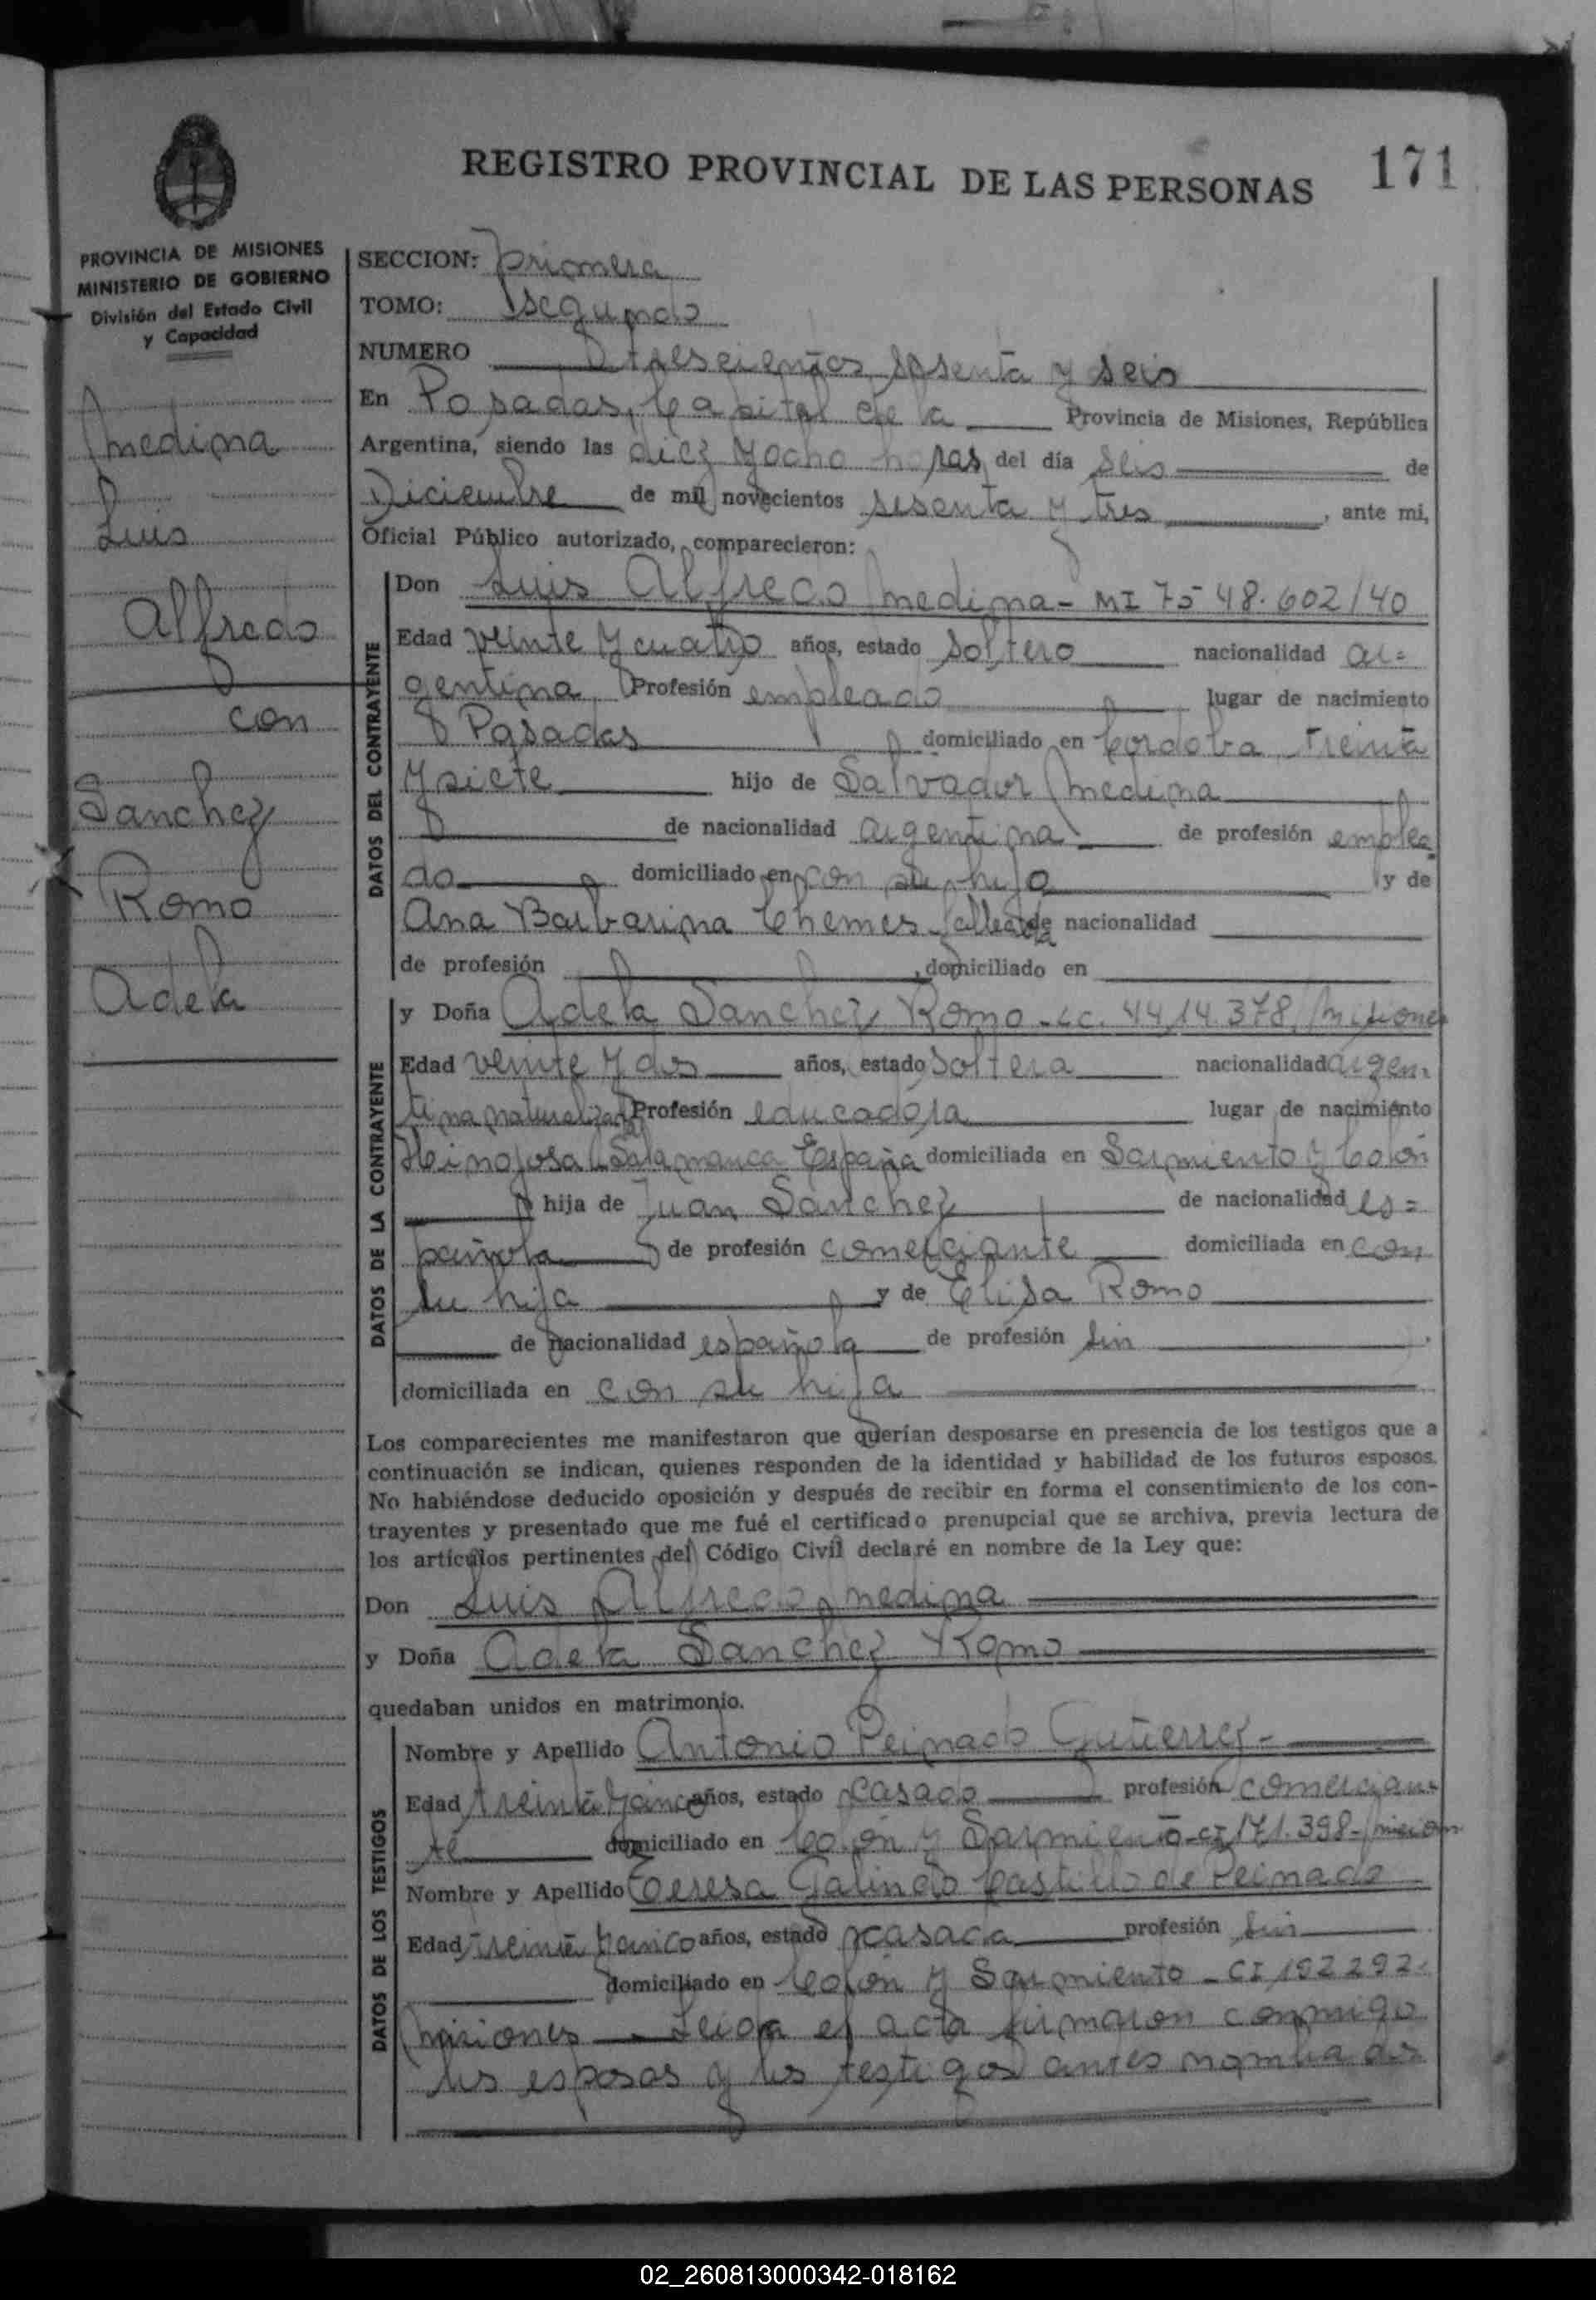 REGISTRO PROVINCIAL DE LAS PERSONAS 171
PROVINCIA DE MISIONES
MINISTERIO DE GOBIERNO
División del Estado Civil
y Capacidad
Medina
Luis
Alfredo
con
Sanchez
Romo
Adela
SECCION: primera
TOMO: segundo
NUMERO trescientos sesenta y seis
En Posadas, Capital de la Provincia de Misiones, República
Argentina, siendo las diez y ocho horas del día seis de
Diciembre de mil novecientos sesenta y tres, ante mi,
Oficial Público autorizado, comparecieron:
DATOS DEL CONTRAYENTE
Don Luis Alfredo Medina - MI 75 48.602/40
Edad veinte y cuatro años, estado soltero nacionalidad ar=
gentina Profesión empleado lugar de nacimiento
Posadas domiciliado en Cordoba treinta
y siete hijo de Salvador Medina
de nacionalidad argentina de profesión emplea
do domiciliado en con su hijo y de
Ana Barbarina Chemes fallecida de nacionalidad
de profesión domiciliado en
DATOS DE LA CONTRAYENTE
y Doña Adela Sanchez Romo - cc. 4414.378 Misiones
Edad veinte y dos años, estado soltera nacionalidad argen=
tina naturalizada Profesión educadora lugar de nacimiento
Hinojosa Salamanca España domiciliada en Sarmiento y Colón
hija de Juan Sanchez de nacionalidad es=
pañola de profesión comerciante domiciliada en con
su hija y de Elisa Romo
de nacionalidad española de profesión sin
domiciliada en con su hija
Los comparecientes me manifestaron que querían desposarse en presencia de los testigos que a
continuación se indican, quienes responden de la identidad y habilidad de los futuros esposos.
No habiéndose deducido oposición y después de recibir en forma el consentimiento de los con-
trayentes y presentado que me fué el certificado prenupcial que se archiva, previa lectura de
los artículos pertinentes del Código Civil declaré en nombre de la Ley que:
Don Luis Alfredo Medina
y Doña Adela Sanchez Romo
quedaban unidos en matrimonio.
DATOS DE LOS TESTIGOS
Nombre y Apellido Antonio Peinado Gutierrez -
Edad treinta y cinco años, estado casado profesión comercian=
te domiciliado en Colón y Sarmiento - CI 171.398 - Misiones
Nombre y Apellido Teresa Galindo Castillo de Peinado
Edad treinta y cinco años, estado casada profesión sin
domiciliado en Colón y Sarmiento - CI 192292
Misiones - Leida el acta firmaron conmigo
los esposos y los testigos antes nombrados
02_260813000342-018162